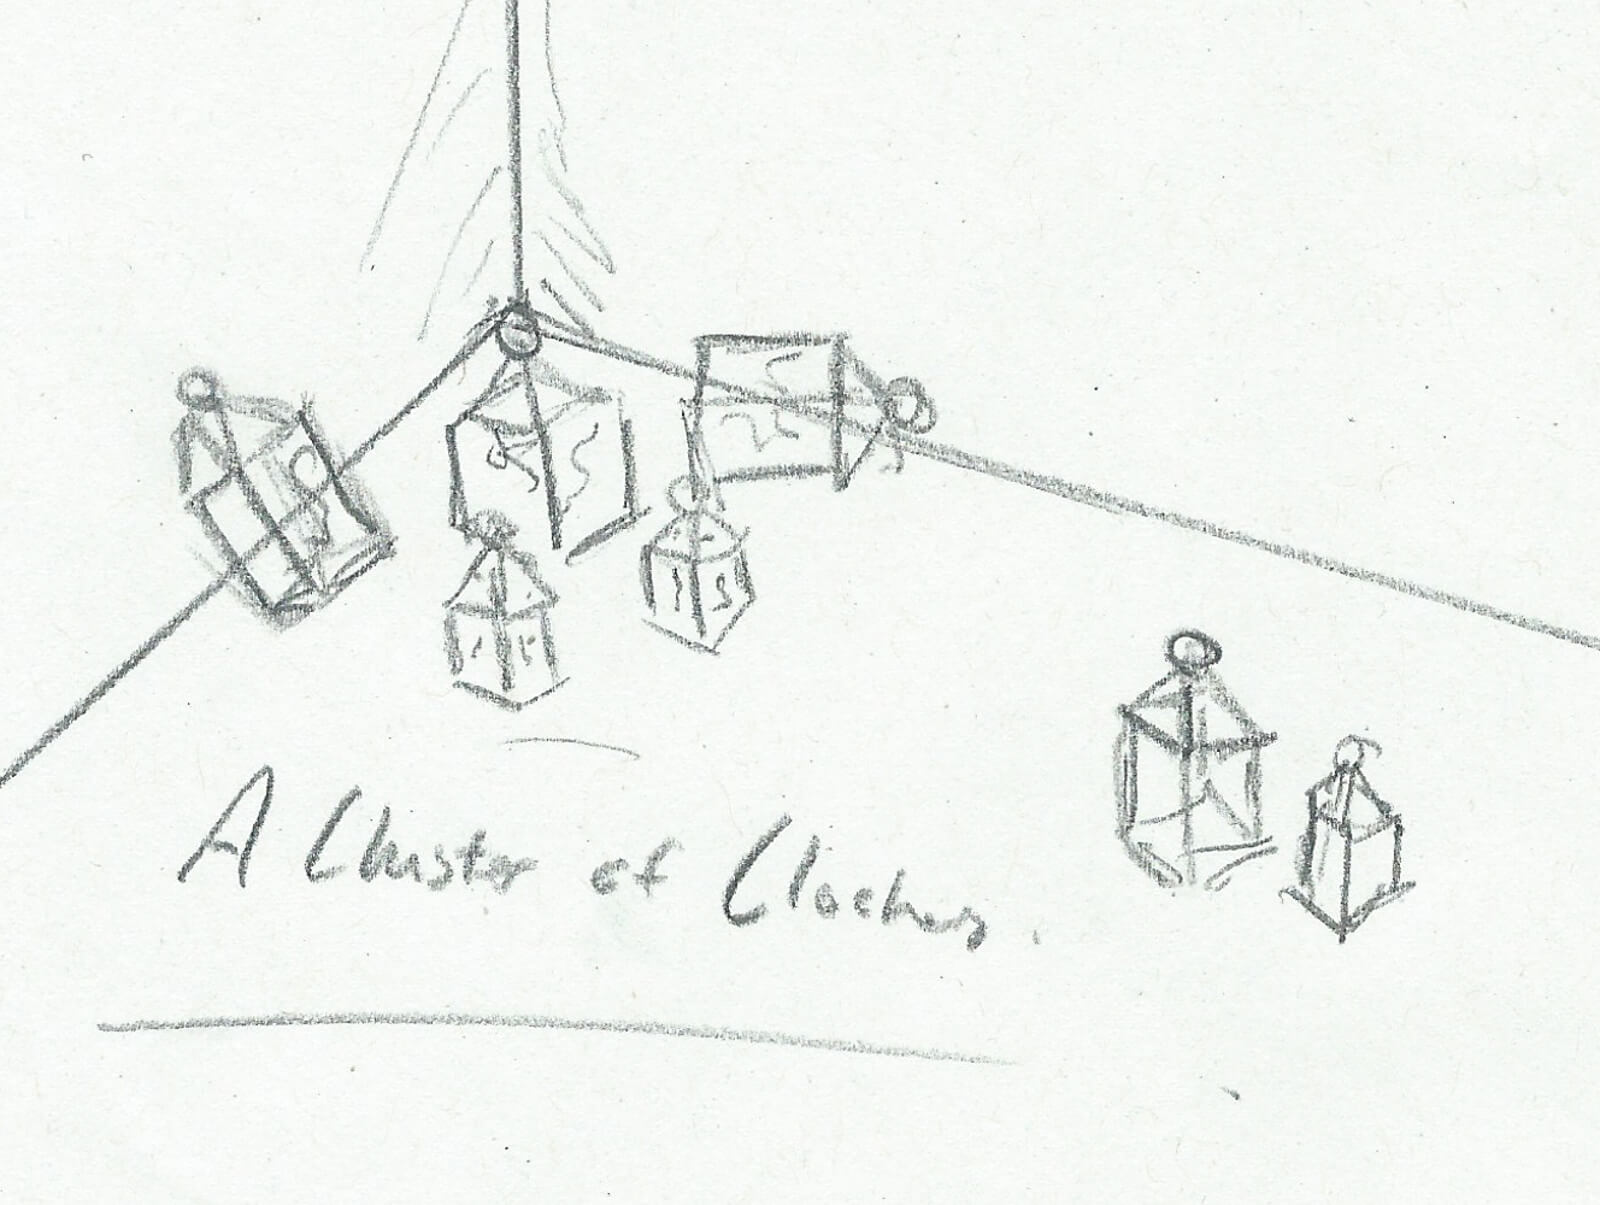 A Cluster of Cloches.